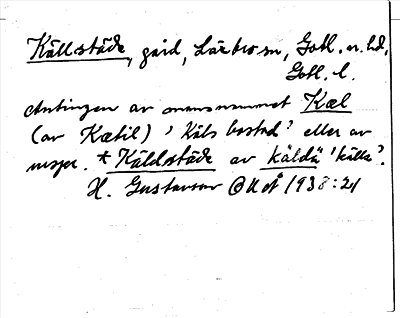 Källstäde, gård, Lärbro sn, Gotl. n. hd,
Gotl. l.
Antingen av mansnamnet Kæl
(av Kætil) 'Käls bostad' eller av
urspr. *Käldstäde av käldä 'källa'.
H. Gustavson 1938:21